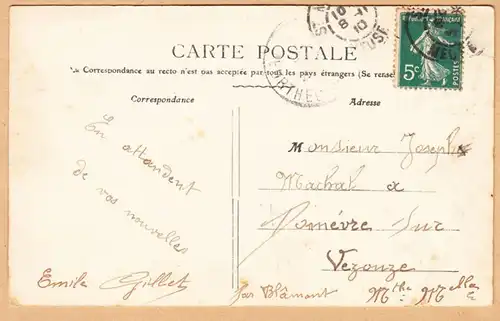 CARTE POSTALE
La Correspondance au recto n'est pas acceptée par tous les pays étrangers (Se rense
Correspondance
Adresse
5c
POSTES
En attendent
de vos nouvelles
Emile Gillet
Monsieur Joseph
Machal a
Domèvre Sur
Vezouze
par Blâmont
Mthe Mzelle